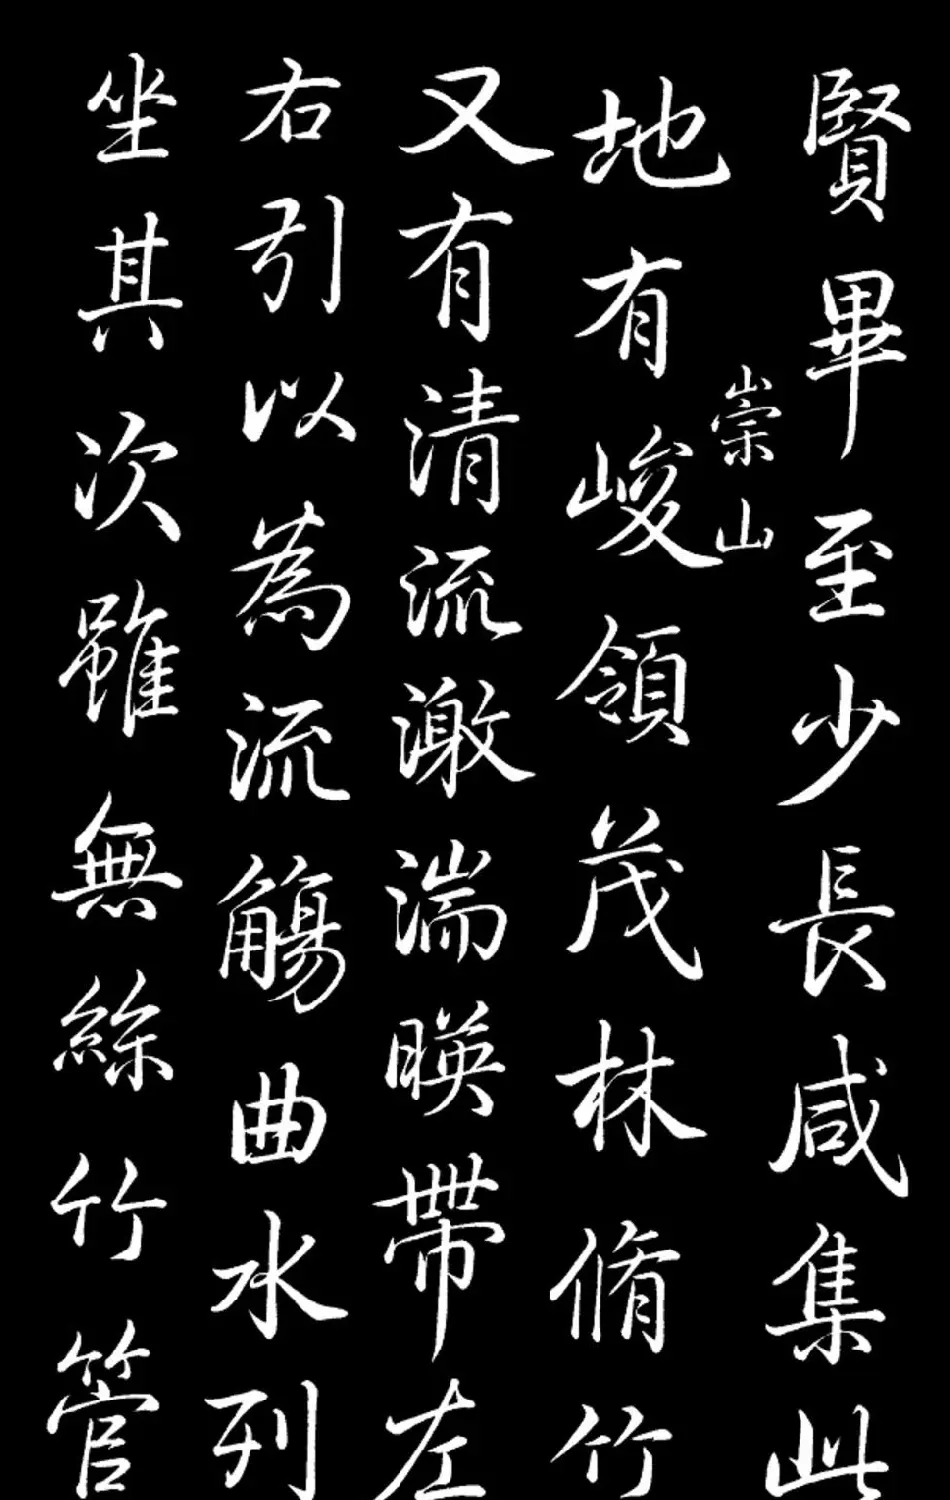 賢畢至少長咸集此
地有峻領茂林脩竹
崇山
又有清流激湍暎帶左
右引以為流觴曲水列
坐其次雖無絲竹管